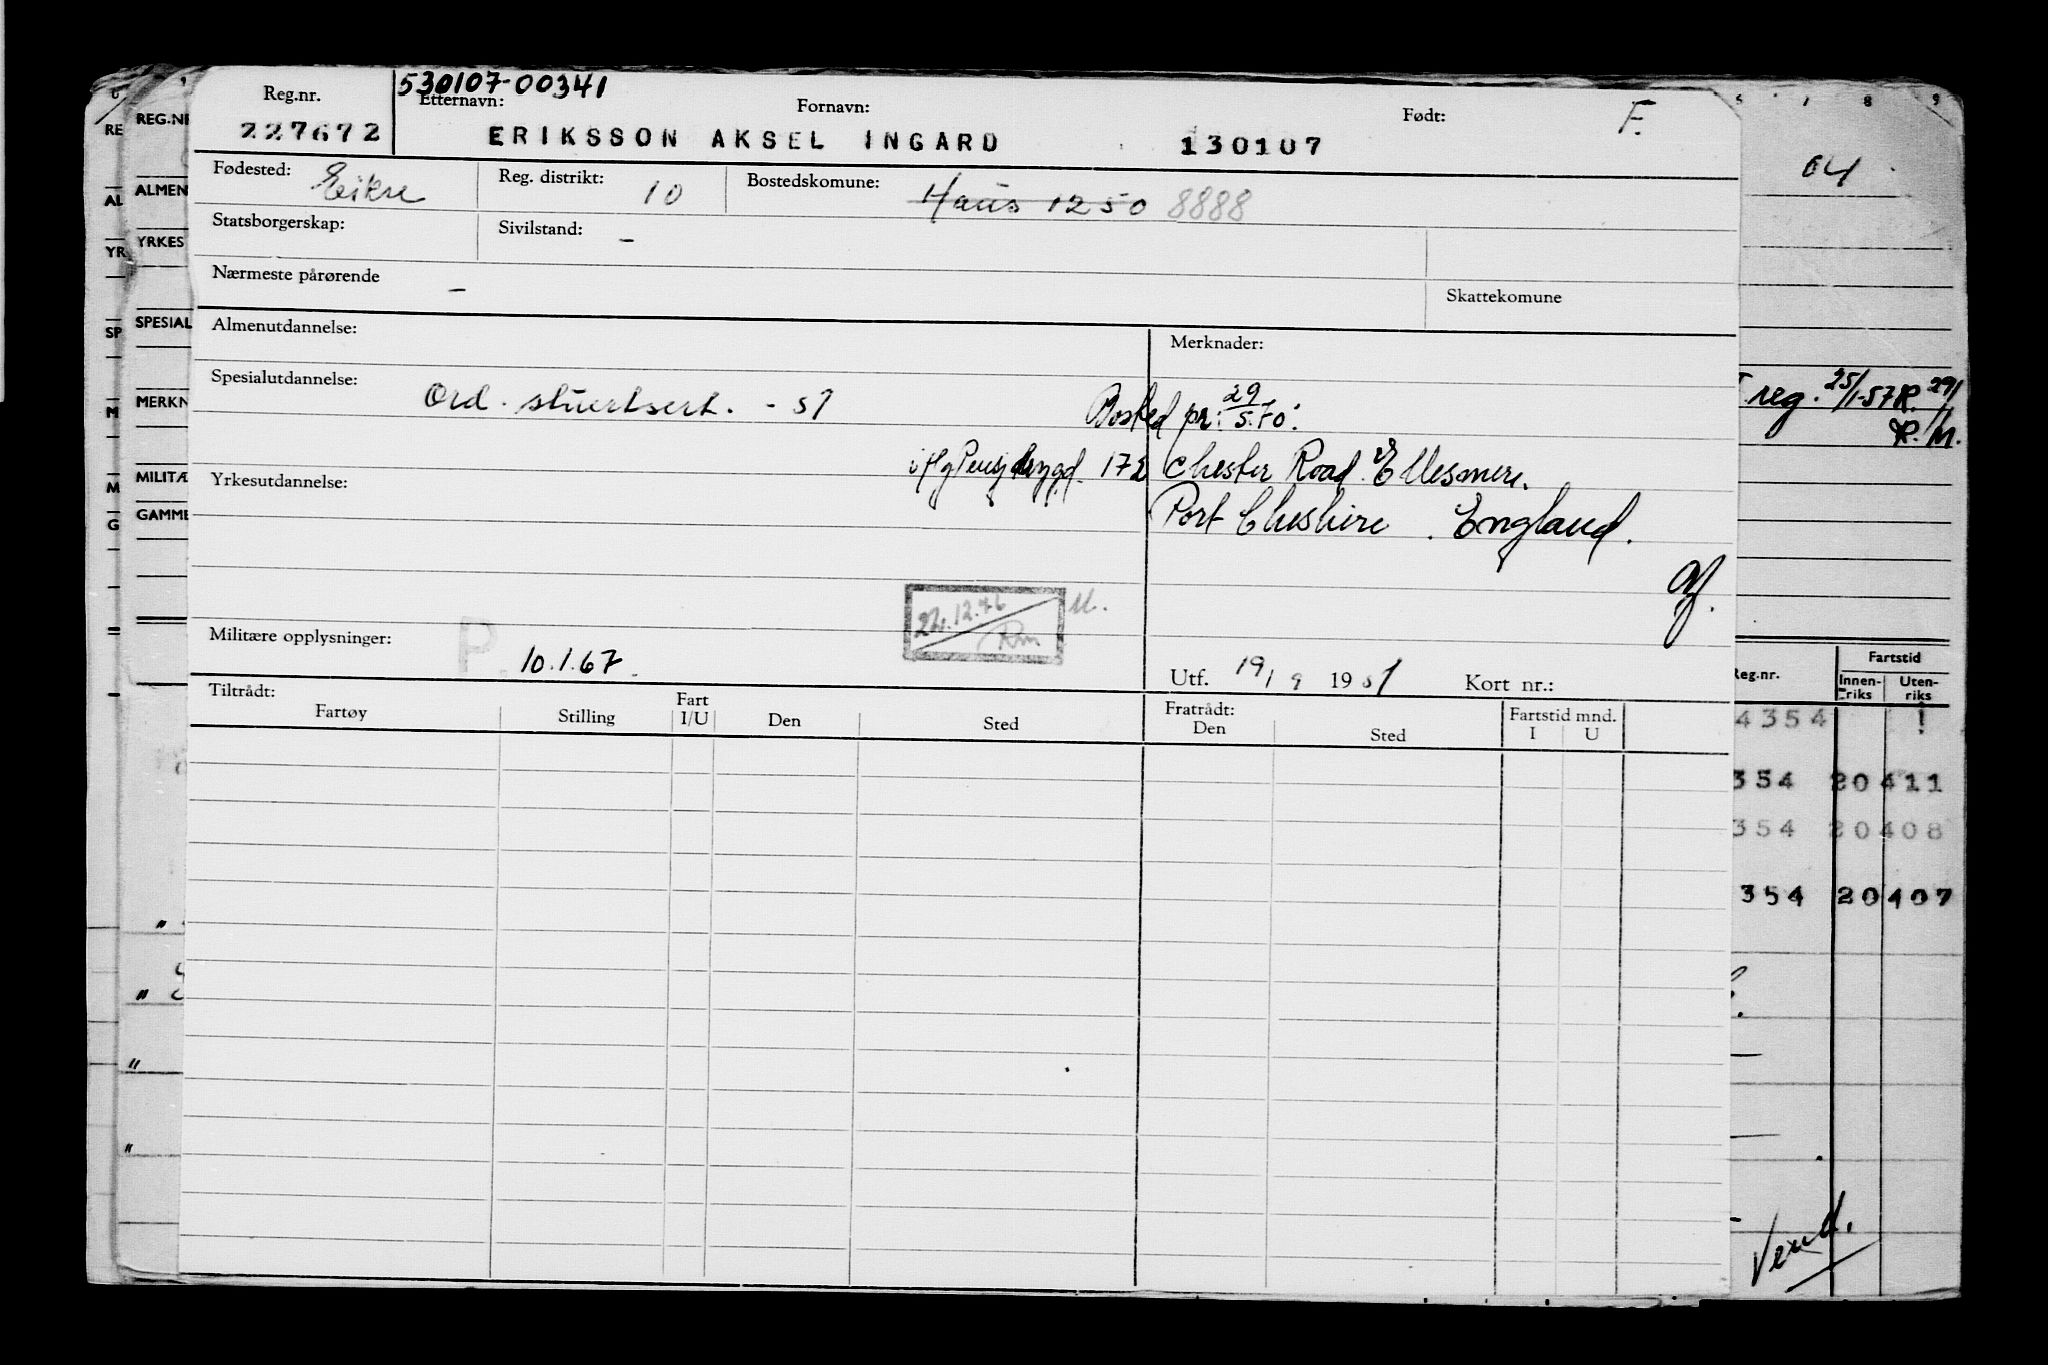 530107-00341
Reg.nr. Etternavn: Fornavn: Født: F.
227672 ERIKSSON AKSEL INGARD 130107
Fødested: Eikre Reg. distrikt: 10 Bostedskomune: Haus 1250 8888
Statsborgerskap: Sivilstand: -
Nærmeste pårørende -
Skattekomune
Almenutdannelse: Merknader:
Spesialutdannelse: Ord. stuertsert. - 51
Bosted pr. 29/5.70:
172 Chester Road Ellesmere.
Yrkesutdannelse:
Port Cheshire. England.
22.12.76 Rm M.
Militære opplysninger: P. 10.1.67.
Utf. 19/9 1951 Kort nr.:
Tiltrådt: Fratrådt:
Fartøy Stilling Fart I/U Den Sted Den Sted Fartstid mnd. I U
RE
AL
YR
SP
M
M
G
REG.NR
ALMEN
YRKES
SPESIAL
MERKN
MILITÆ
GAMME
6 7 8 9
04
reg. 25/1-57 R. 29/1
R. M.
Reg.nr. Fartstid
Innen-riks Uten-riks
4354 !
354 20411
354 20408
354 20407
Vend.